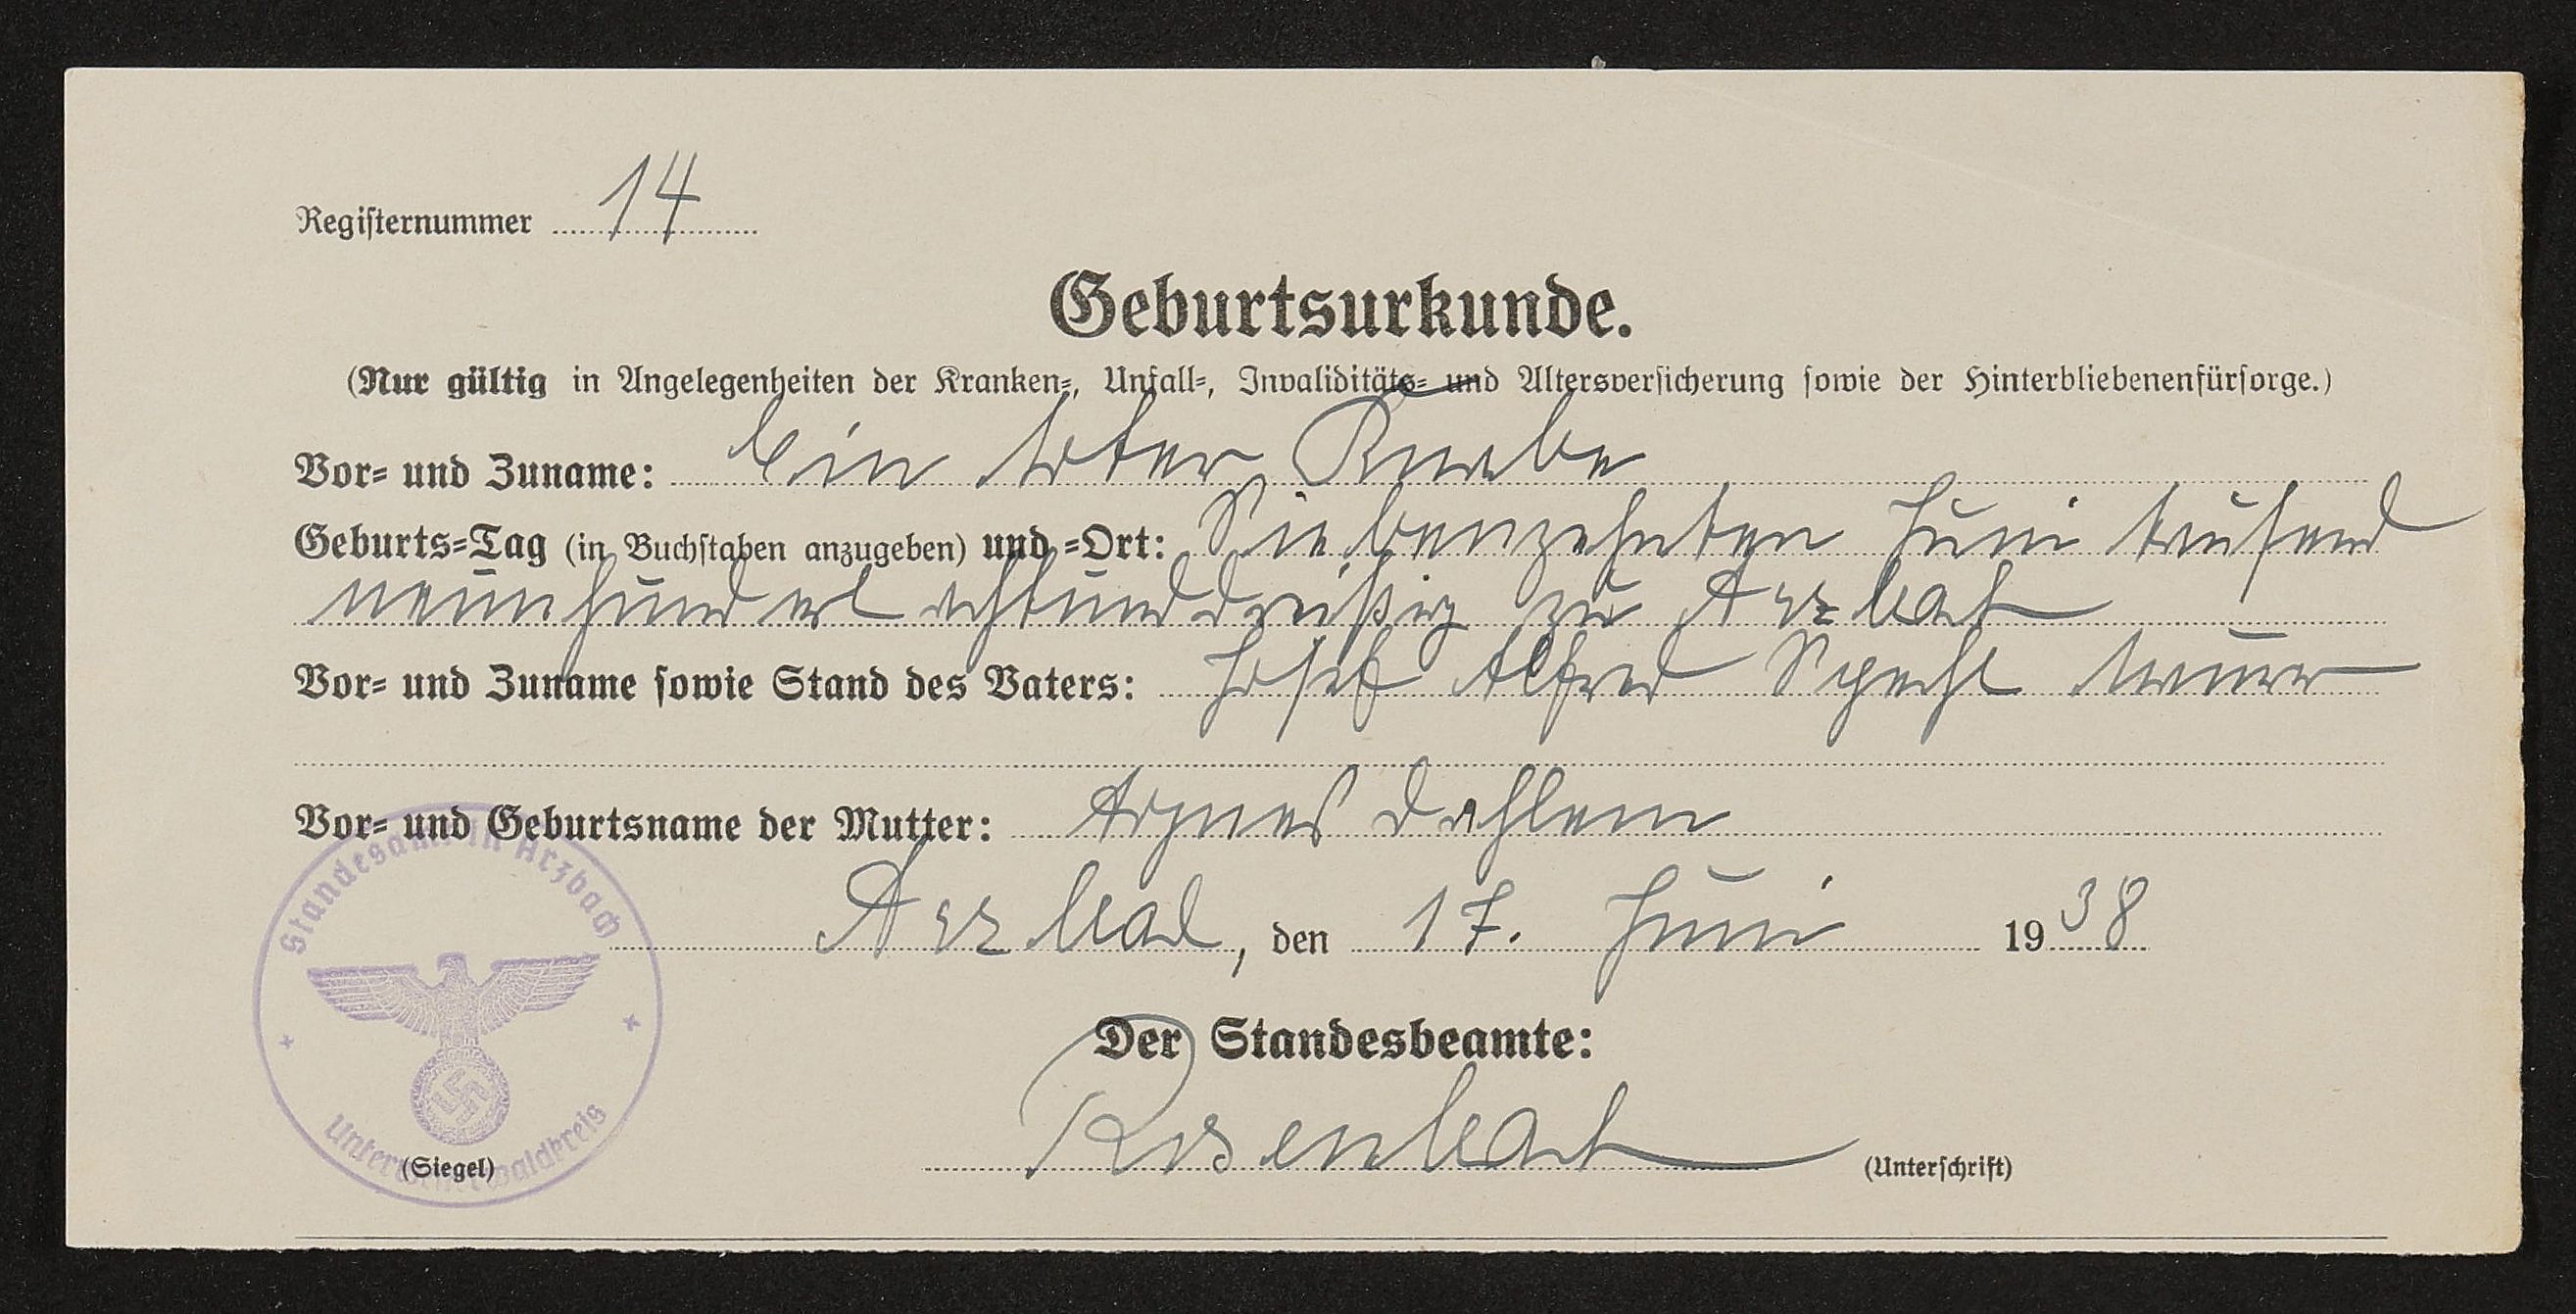 Registernummer 14
Geburtsurkunde.
(Nur gültig in Angelegenheiten der Kranken=, Unfall=, Invaliditäts= und Altersversicherung sowie der Hinterbliebenenfürsorge.)
Vor= und Zuname: Ein toter Knabe
Geburts=Tag (in Buchstaben anzugeben) und =Ort: Siebenzehnten Juni tausend
neunhundert achtunddreißig zu Arzbach
Vor= und Zuname sowie Stand des Vaters: Josef Alfred Specht Maurer
Vor= und Geburtsname der Mutter: Agnes Dahlem
Arzbach, den 17. Juni 1938
Der Standesbeamte:
Rosenbach
(Unterschrift)
Standesamt in Arzbach
Unterwesterwaldkreis
(Siegel)